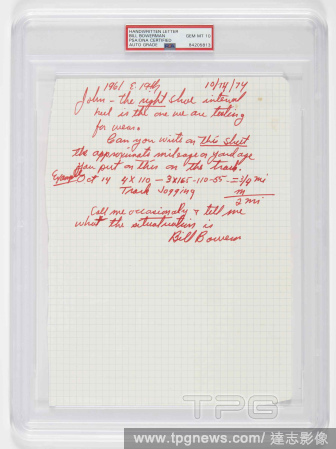 HANDWRITTEN LETTER
BILL BOWERMAN
PSA/DNA CERTIFIED
AUTO GRADE
GEM-MT 10
84209813
1961 E 19th 10/14/74
John - the right shoe internal
heel is the one we are testing
for wear.
Can you write on this sheet
the approximate mileage or yardage
than put in this on the track.
Example Oct 14 4 x 110 - 3x165-110-55- = 3/4 mi
Track Jogging m
2 mi
Call me occasionaly & tell me
what the situatuation is
Bill Bowerm
TPG
www.tpgnews.com/達志影像